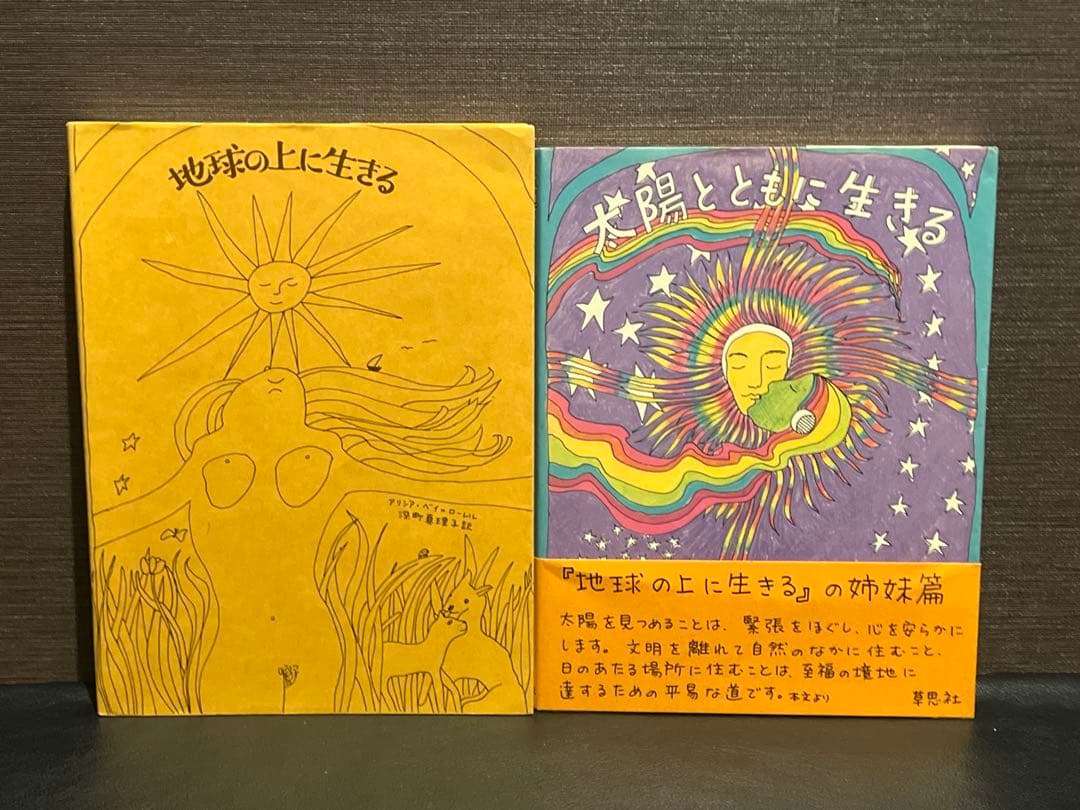 地球の上に生きる
アリシア・ベイ=ローレル
深町真理子訳
太陽とともに生きる
『地球の上に生きる』の姉妹篇
太陽を見つめることは、緊張をほぐし、心を安らかに
します。文明を離れて自然のなかに住むこと、
日のあたる場所に住むことは、至福の境地に
達するための平易な道です。本文より
草思社